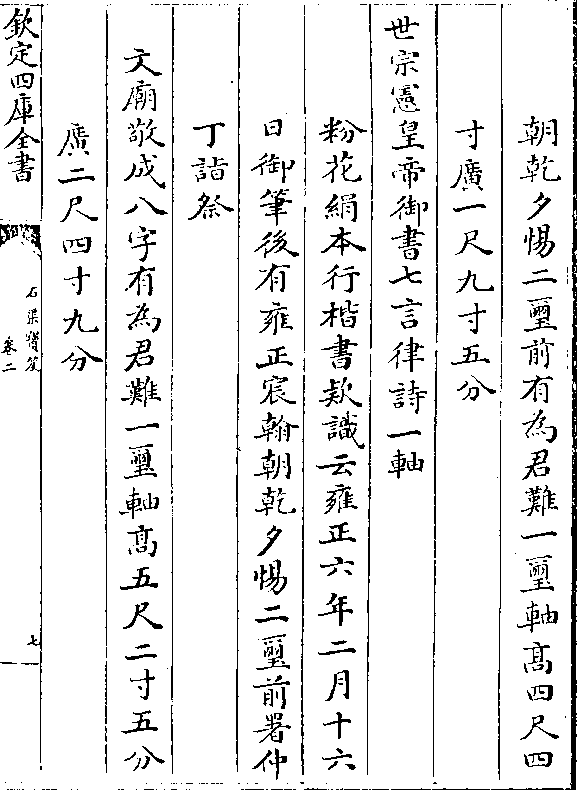 朝乾夕惕二璽前有為君難一璽軸髙四尺四
寸廣一尺九寸五分
世宗憲皇帝御書七言律詩一軸
粉花絹本行楷書欵識云雍正六年二月十六
日御筆後有雍正宸翰朝乾夕惕二璽前署仲
丁詣祭
文廟敬成八字有為君難一璽軸髙五尺二寸五分
廣二尺四寸九分
欽定四庫全書
石渠寳笈
卷二
七